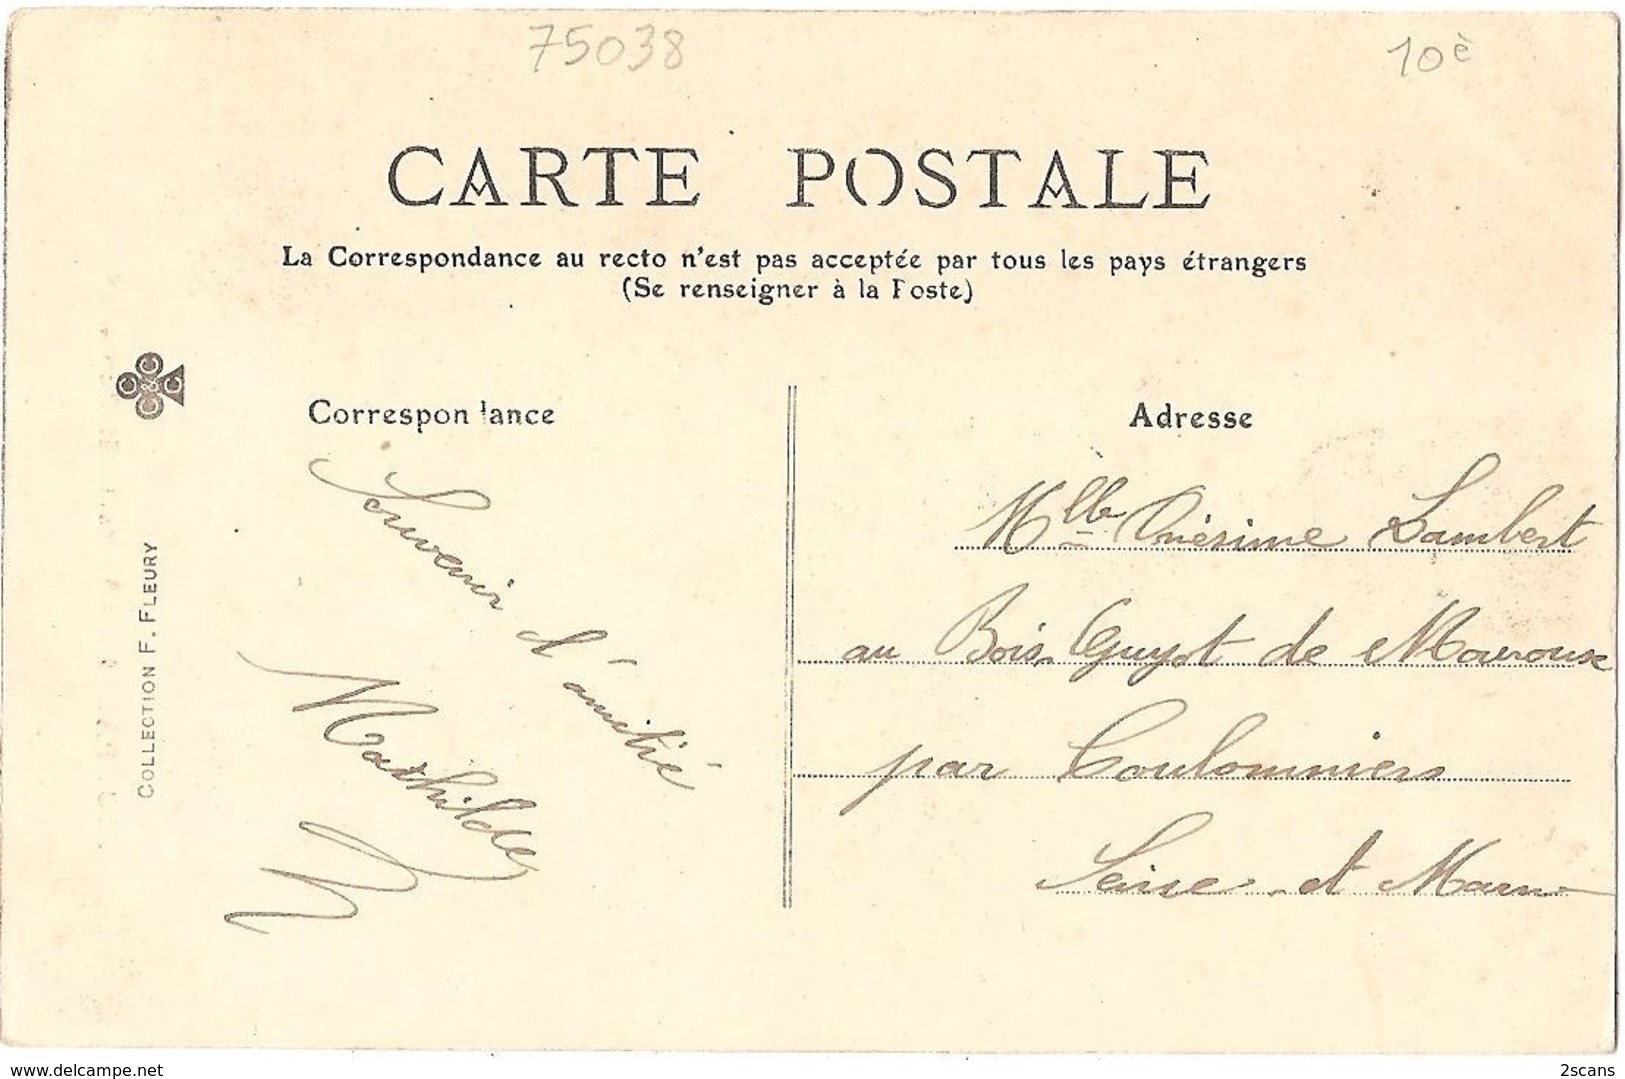 75038
10è
CARTE POSTALE
La Correspondance au recto n'est pas acceptée par tous les pays étrangers
(Se renseigner à la Poste)
C C & C C
COLLECTION F. FLEURY
Correspondance
Souvenir
d'amitié
Mathilde
Adresse
Mlle Onésime Lambert
au Bois Guyot de Mauroux
par Coulommiers
Seine et Marne
www.delcampe.net
2scans